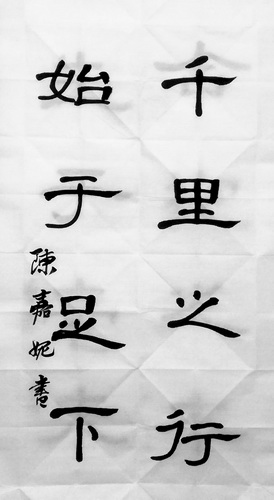 千里之行
始于足下
陳嘉妮書